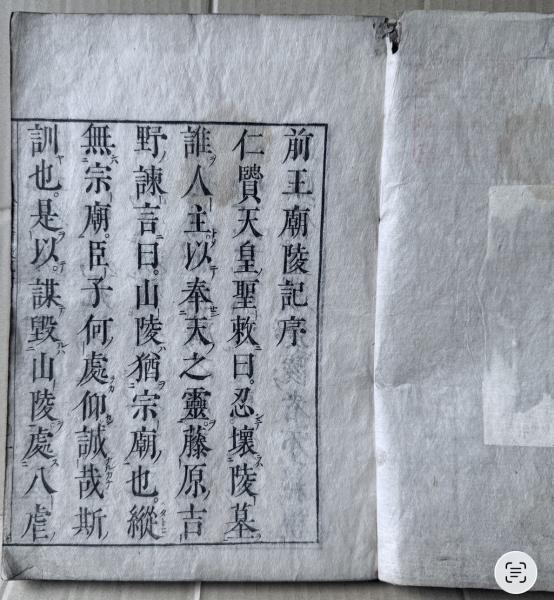 前王廟陵記序
仁賢天皇聖敕曰。忍壞陵墓
誰人主以奉天之靈。藤原吉
野諫言曰。山陵猶宗廟也。縱
無宗廟。臣子何處仰。誠哉斯
訓也。是以。謀毀山陵。處八虐